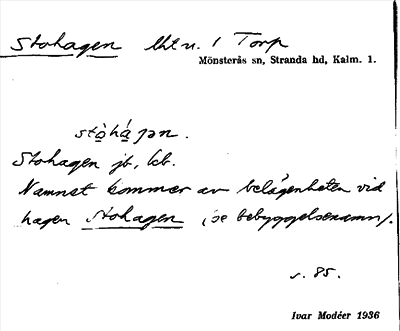 Stohagen lht u. 1 Torp
Mönsterås sn, Stranda hd, Kalm. l.
stòhágən.
Stohagen jb, kb.
Namnet kommer av belägenheten vid
hagen Stohagen (se bebyggelsenamn).
s. 85.
Ivar Modéer 1936